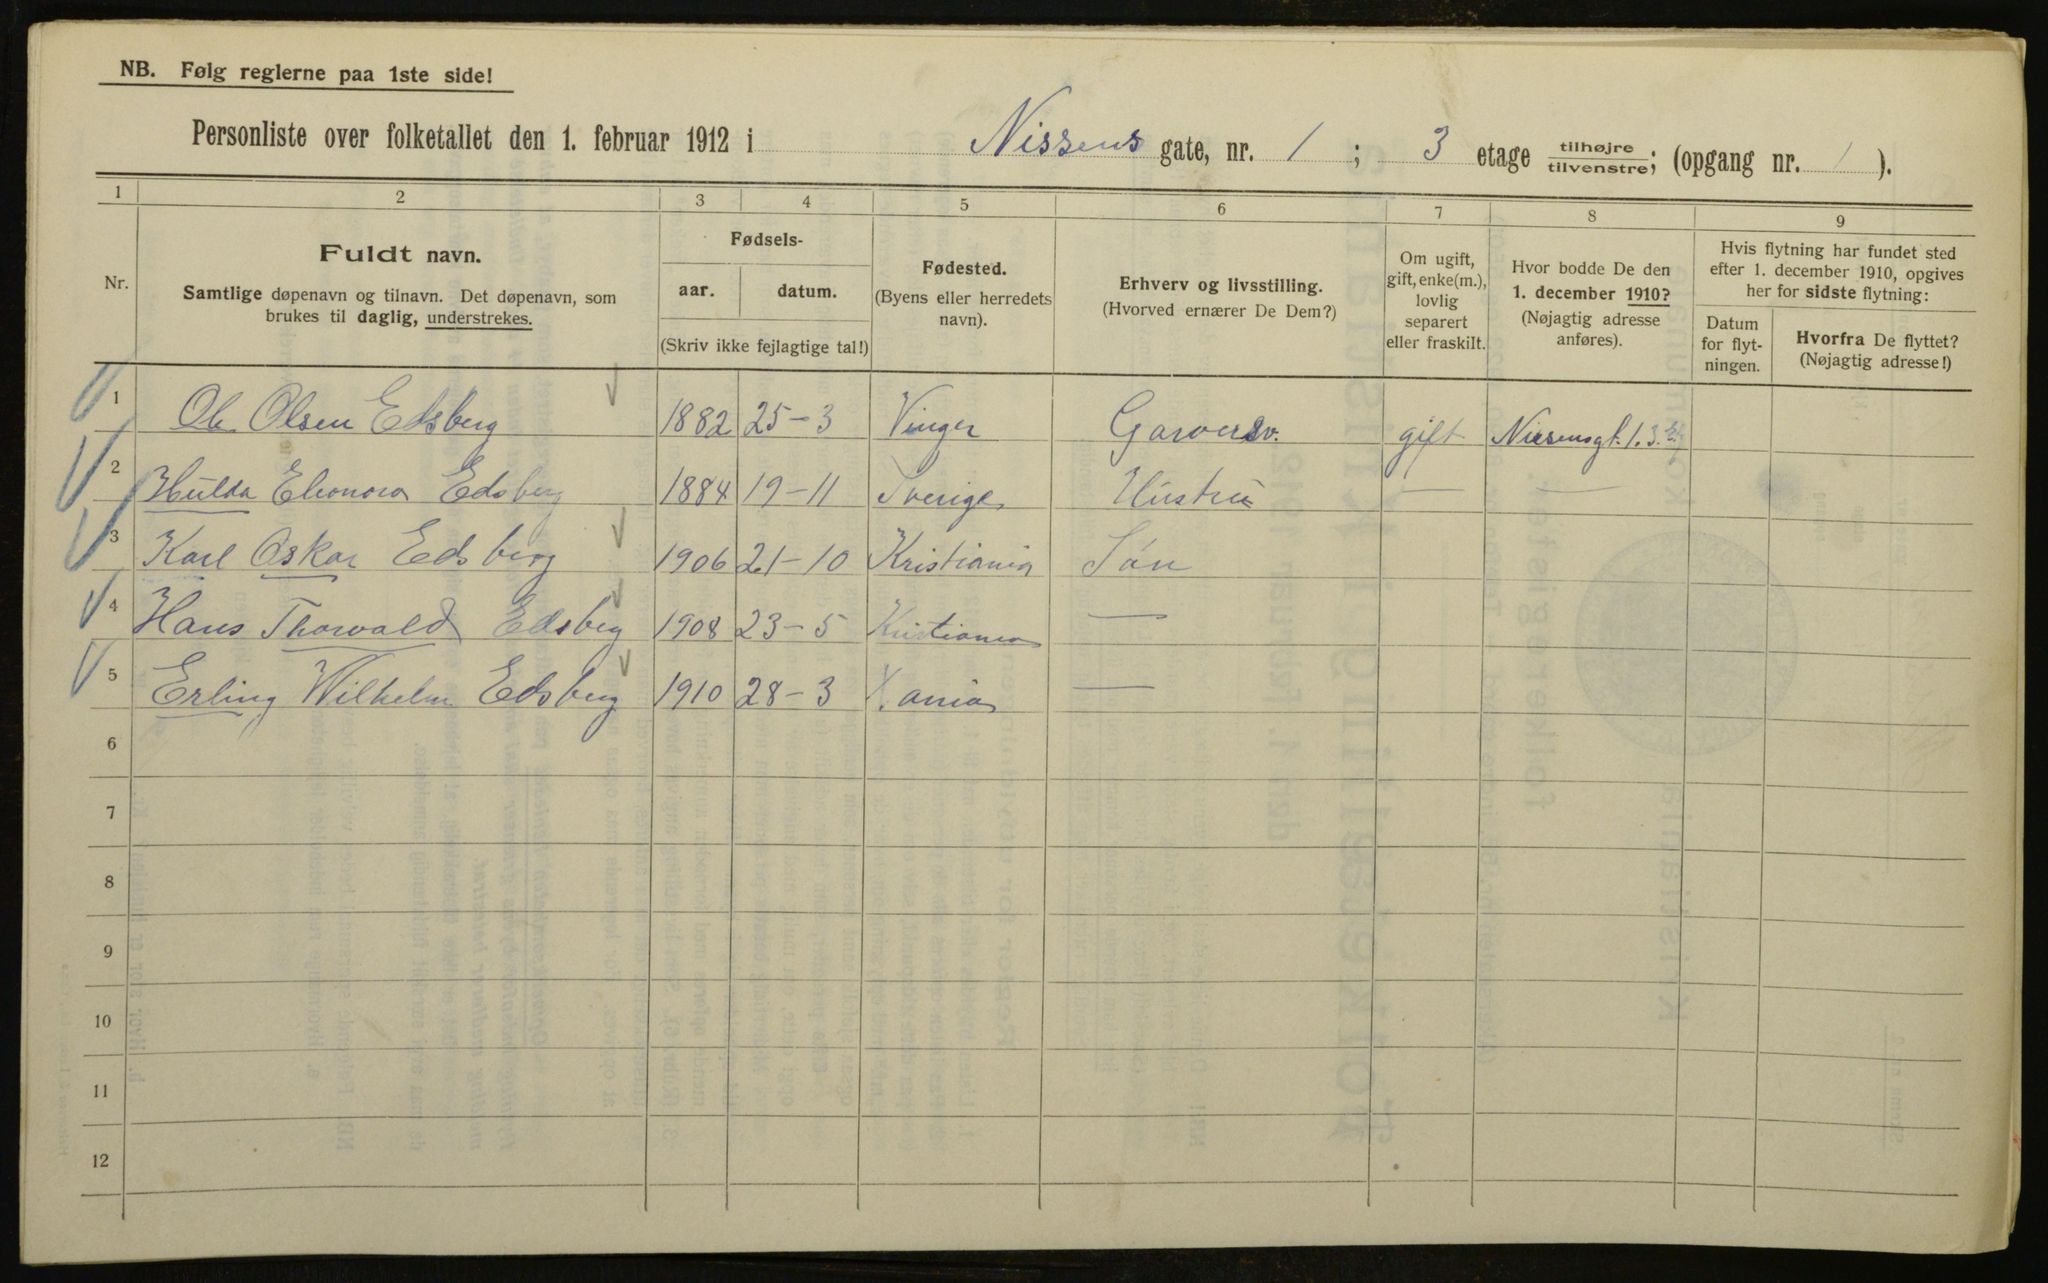 NB. Følg reglerne paa 1ste side!
Personliste over folketallet den 1. februar 1912 i Nissens gate, nr. 1 ; 3 etage tilhøjre tilvenstre; (opgang nr. 1 ).
1 2 3 4 5 6 7 8 9
Nr.
Fuldt navn.
Samtlige døpenavn og tilnavn. Det døpenavn, som
brukes til daglig, understrekes.
Fødsels-
aar. datum.
(Skriv ikke fejlagtige tal!)
Fødested.
(Byens eller herredets
navn).
Erhverv og livsstilling.
(Hvorved ernærer De Dem?)
Om ugift,
gift, enke(m.),
lovlig
separert
eller fraskilt.
Hvor bodde De den
1. december 1910?
(Nøjagtig adresse
anføres).
Hvis flytning har fundet sted
efter 1. december 1910, opgives
her for sidste flytning:
Datum
for flyt-
ningen.
Hvorfra De flyttet?
(Nøjagtig adresse!)
1 Ole Olsen Edsberg 1882 25-3 Vinger Garversv. gift Nissensgt. 1. 3. Et.
2 Hulda Eleonora Edsberg 1884 19-11 Sverige Hustru — —
3 Karl Oskar Edsberg 1906 21-10 Kristiania Søn
4 Hans Thorvald Edsberg 1908 23-5 Kristiania —
5 Erling Wilhelm Edsberg 1910 28-3 X.ania —
6
7
8
9
10
11
12